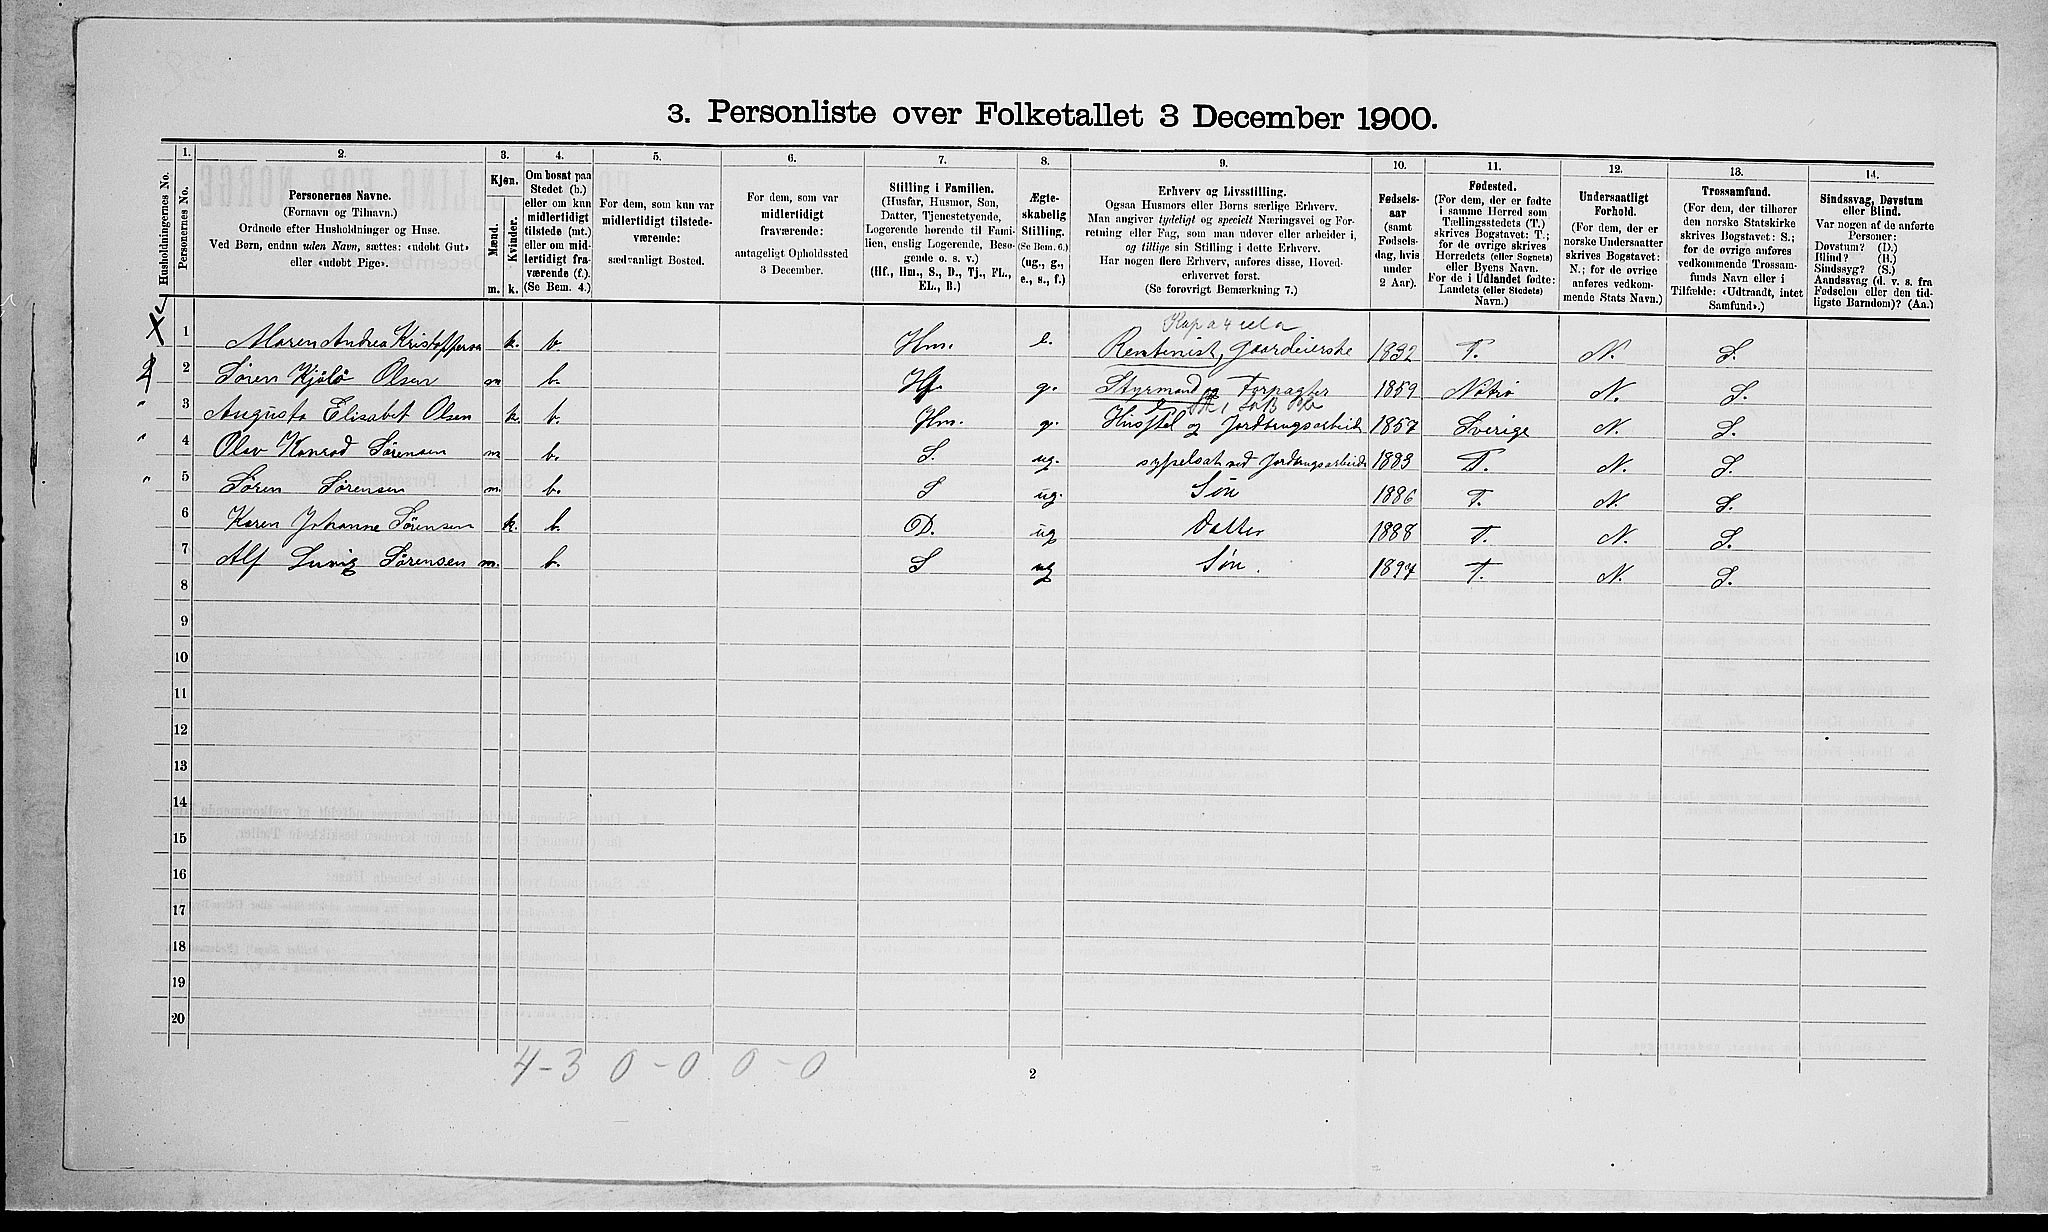 3. Personliste over Folketallet 3 December 1900.
Husholdningernes No.
1.
Personernes No.
2.
Personernes Navne.
(Fornavn og Tilnavn.)
Ordnede efter Husholdninger og Huse.
Ved Børn, endnu uden Navn, sættes: «udøbt Gut»
eller «udøbt Pige».
3.
Kjøn.
Mænd.
Kvinder.
m. k.
4.
Om bosat paa
Stedet (b.)
eller om kun
midlertidigt
tilstede (mt.)
eller om mid-
lertidigt fra-
værende (f.).
(Se Bem. 4.)
5.
For dem, som kun var
midlertidigt tilstede-
værende:
sædvanligt Bosted.
6.
For dem, som var
midlertidigt
fraværende:
antageligt Opholdssted
3 December.
7.
Stilling i Familien.
(Husfar, Husmor, Søn,
Datter, Tjenestetyende,
Logerende hørende til Fami-
lien, enslig Logerende, Besø-
gende o. s. v.)
(Hf., Hm., S., D., Tj., FL.,
EL., B.)
8.
Ægte-
skabelig
Stilling.
(Se Bem. 6.)
(ug., g.,
e., s., f.)
9.
Erhverv og Livsstilling.
Ogsaa Husmors eller Børns særlige Erhverv.
Man angiver tydeligt og specielt Næringsvei og For-
retning eller Fag, som man udøver eller arbeider i,
og tillige sin Stilling i dette Erhverv.
Har nogen flere Erhverv, anføres disse, Hoved-
erhvervet først.
(Se forøvrigt Bemærkning 7.)
10.
Fødsels-
aar
(samt
Fødsels-
dag, hvis
under
2 Aar).
11.
Fødested.
(For dem, der er fødte
i samme Herred som
Tællingsstedets (T.)
skrives Bogstavet: T.;
for de øvrige skrives
Herredets (eller Sognets)
eller Byens Navn.
For de i Udlandet fødte:
Landets (eller Stedets)
Navn.)
12.
Undersaatligt
Forhold.
(For dem, der er
norske Undersaatter
skrives Bogstavet:
N.; for de øvrige
anføres vedkom-
mende Stats Navn.)
13.
Trossamfund.
(For dem, der tilhører
den norske Statskirke
skrives Bogstavet: S.;
for de øvrige anføres
vedkommende Trossam-
funds Navn eller i
Tilfælde: «Udtraadt, intet
Samfund».)
14.
Sindssvag, Døvstum
eller Blind.
Var nogen af de anførte
Personer:
Døvstum? (D.)
Blind? (B.)
Sindssyg? (S.)
Aandssvag (d. v. s. fra
Fødselen eller den tid-
ligste Barndom)? (Aa.)
1 Maren Andrea Kristoffersen k. b. Hm. e. Rentenist, gaardeierske 1832 T. N. S.
2 2 Søren Kjølö Olsen m b. Hf. g. Styrmand og Forpagter 1859 Nøtrø N. S.
" 3 Augusta Elisabet Olsen k. b. Hm. g. Husstel og Jordbrugsarbeide 1857 Sverige N. S.
" 4 Olav Konrad Sørensen m b. S. ug. sysselsat ved Jordbrugsarbeide 1883 T. N. S.
" 5 Søren Sørensen m. b. S ug. Søn 1886 T. N. S.
6 Karen Johanne Sørensen k. b. D. ug Datter 1888 T. N. S.
7 Alf Luvig Sørensen m. b. S ug Søn. 1894 T. N. S.
8
9
10
11
12
13
14
15
16
17
18
19
20
4-3 0-0 0-0
2